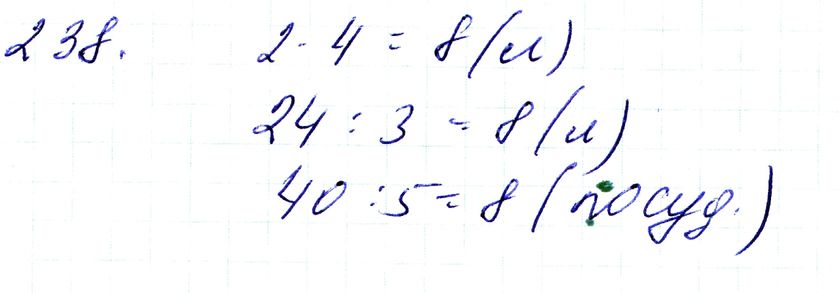 238. 2 · 4 = 8 (л)
24 : 3 = 8 (л)
40 : 5 = 8 (посуд.)